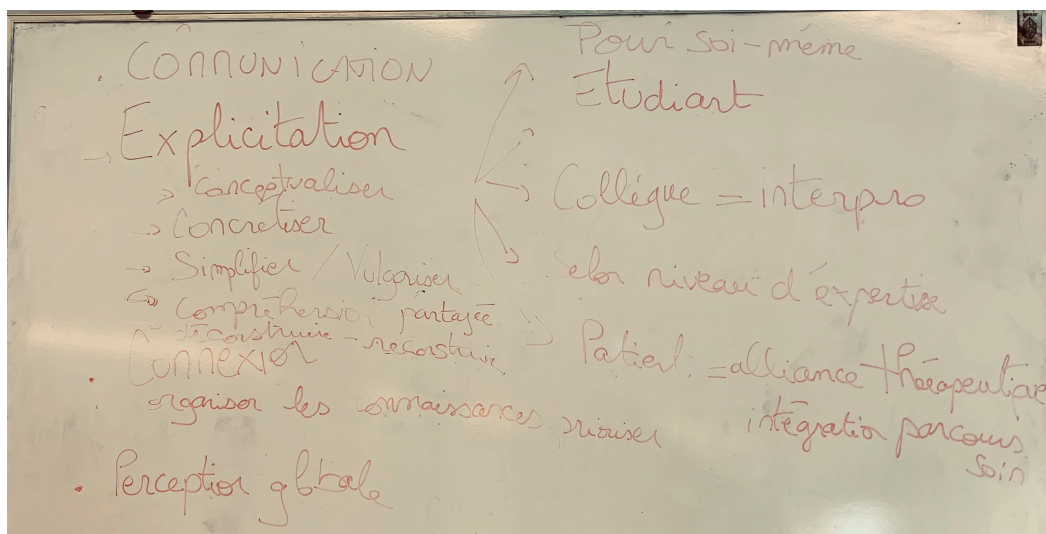 . COMMUNICATION
→ Explicitation
→ Conceptualiser
→ Concrétiser
→ Simplifier / Vulgariser
↪ Compréhension partagée
déconstruire - reconstruire
. Connexion
organiser les connaissances, prioriser
. Perception globale
Pour soi-même
Etudiant
Collégue = interpro
Selon niveau d'expertise
Patient = alliance thérapeutique
intégration parcours
soin